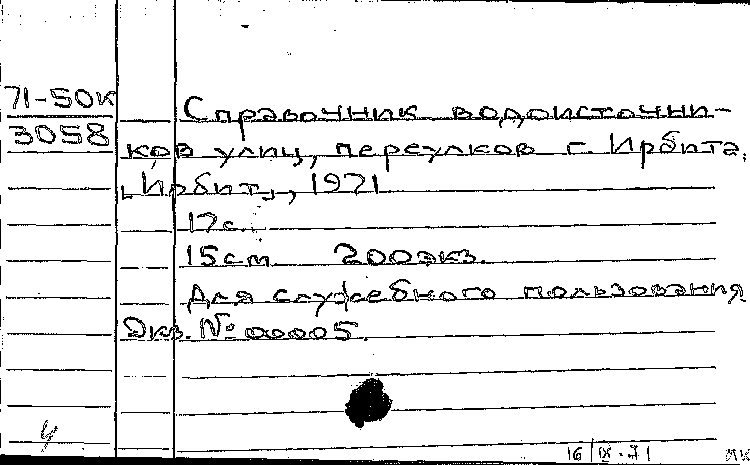 71-50к
3058
Справочник водоисточни-
ков улиц, переулков г. Ирбита.
[Ирбит], 1971
17с.
15см 200экз.
Для служебного пользования
Экз. № 00005.
у
16/IX-71 МК